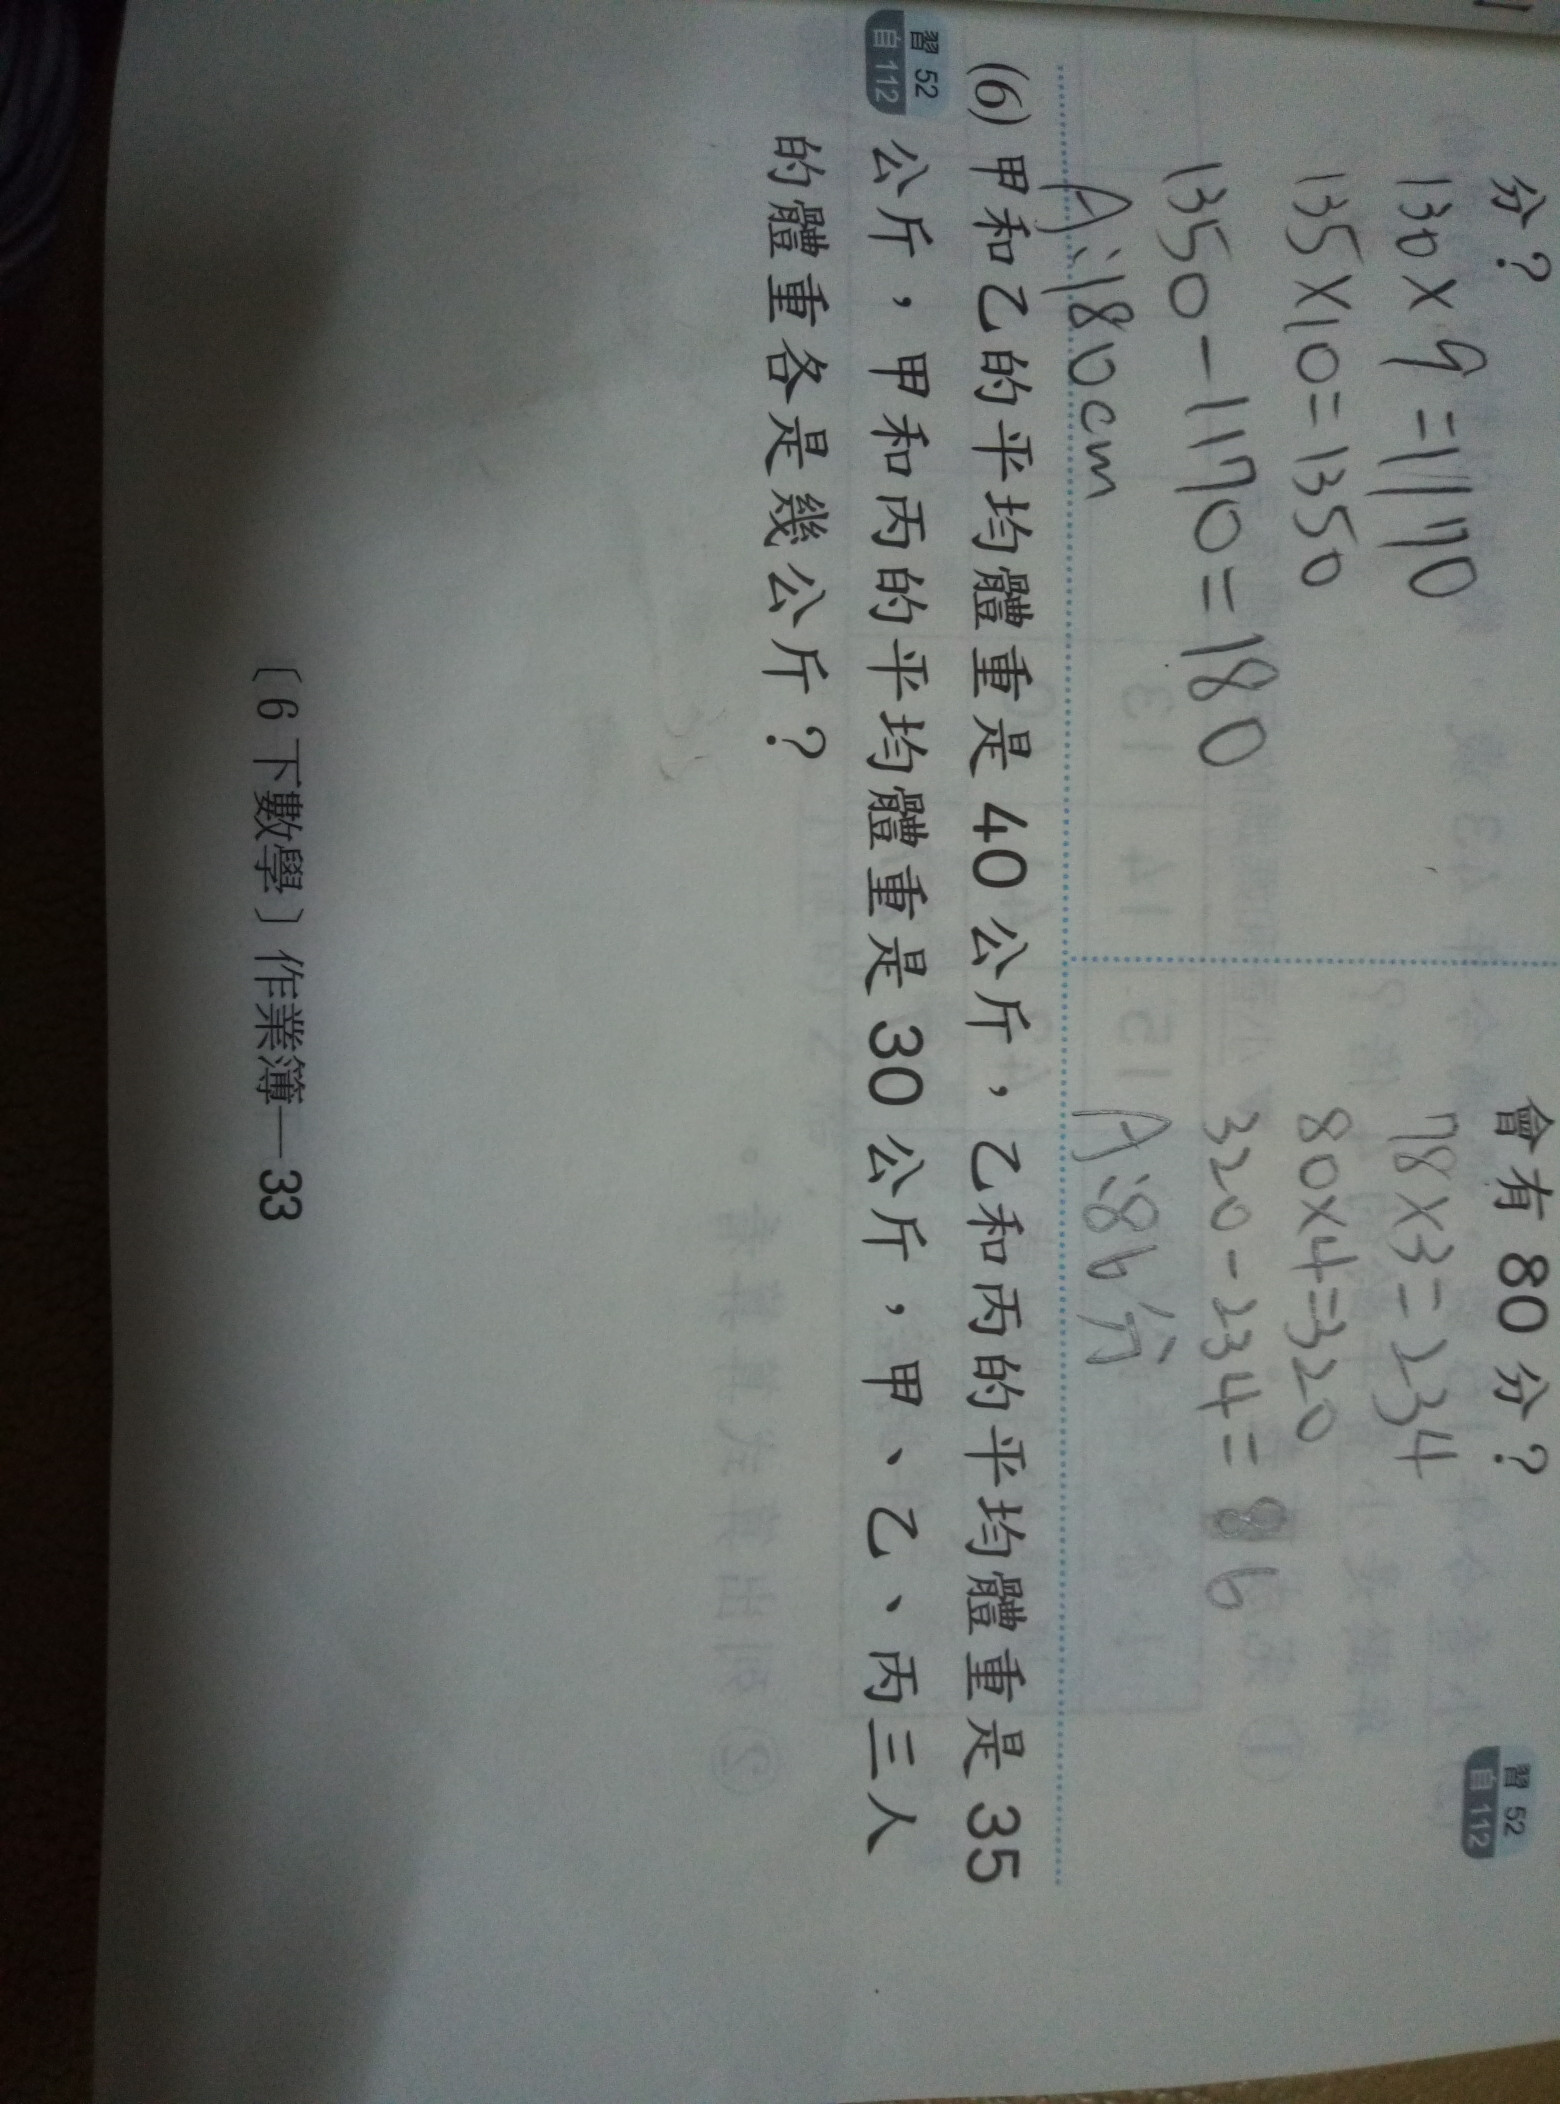 分？
130×9=1170
135×10=1350
1350-1170=180
A:180cm
會有 80 分？
習 52
自 112
78×3=234
80×4=320
320-234=86
A:86分
(6) 甲和乙的平均體重是 40 公斤，乙和丙的平均體重是 35
習 52
自 112
公斤，甲和丙的平均體重是 30 公斤，甲、乙、丙三人
的體重各是幾公斤？
〔6 下數學〕作業簿—33